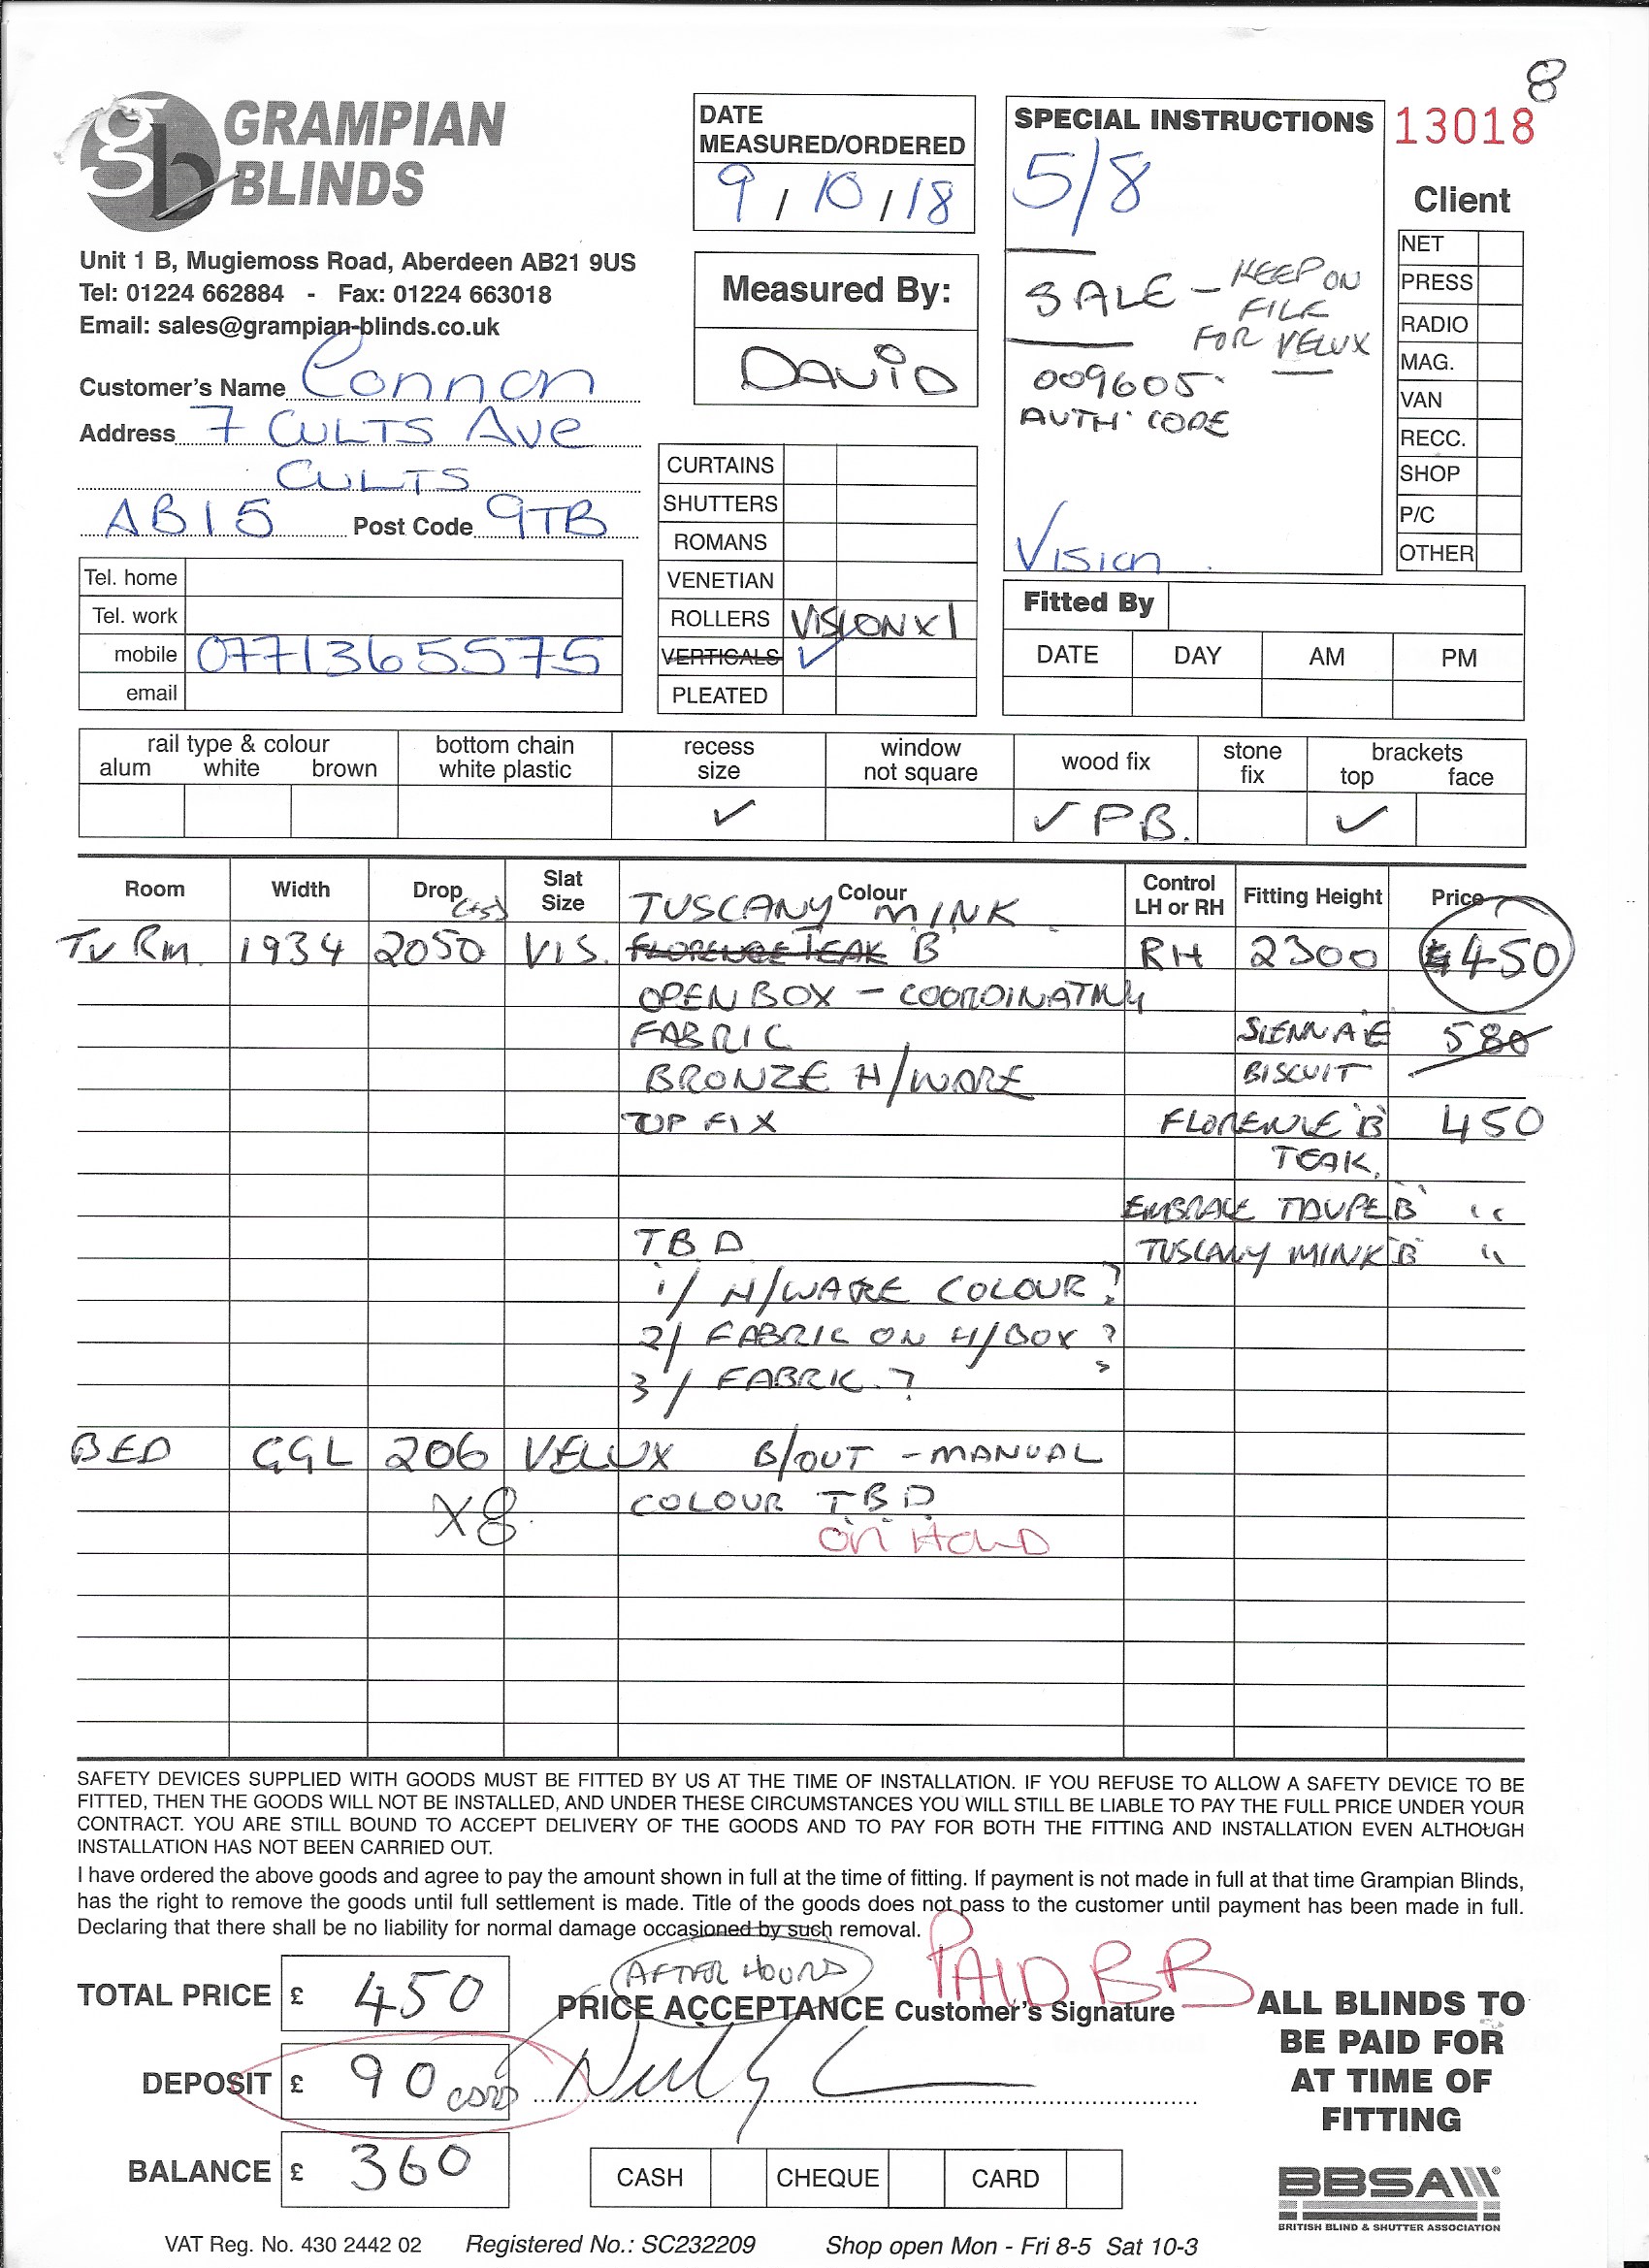 8
GRAMPIAN
BLINDS
Unit 1 B, Mugiemoss Road, Aberdeen AB21 9US
Tel: 01224 662884 - Fax: 01224 663018
Email: sales@grampian-blinds.co.uk
Customer's Name Connon
Address 7 CULTS Ave
CULTS
AB15 Post Code 9TB
Tel. home
Tel. work
mobile 0771365575
email
DATE
MEASURED/ORDERED
9/10/18
Measured By:
DAVID
CURTAINS
SHUTTERS
ROMANS
VENETIAN
ROLLERS VISION X1
VERTICALS ✓
PLEATED
SPECIAL INSTRUCTIONS
5/8
SALE - KEEP ON
FILE
FOR VELUX
009605
AUTH CODE
Vision
13018
Client
NET
PRESS
RADIO
MAG.
VAN
RECC.
SHOP
P/C
OTHER
Fitted By
DATE DAY AM PM
rail type & colour
alum white brown
bottom chain
white plastic
recess
size
window
not square
wood fix
stone
fix
brackets
top face
✓ ✓ PB. ✓
Room Width Drop (+5) Slat Size Colour Control LH or RH Fitting Height Price
TUSCANY MINK
TV RM. 1934 2050 VIS. FLORENCE TEAK B RH 2300 450
OPEN BOX - COORDINATING
FABRIC SIENNA E 580
BRONZE H/WARE BISCUIT
TOP FIX FLORENCE B 450
TEAK.
EMBRACE TAUPE B "
TBD TUSCANY MINK B "
1/ H/WARE COLOUR?
2/ FABRIC ON H/BOX?
3/ FABRIC?
BED GGL 206 VELUX B/OUT - MANUAL
X8 COLOUR TBD
ON HOLD
SAFETY DEVICES SUPPLIED WITH GOODS MUST BE FITTED BY US AT THE TIME OF INSTALLATION. IF YOU REFUSE TO ALLOW A SAFETY DEVICE TO BE
FITTED, THEN THE GOODS WILL NOT BE INSTALLED, AND UNDER THESE CIRCUMSTANCES YOU WILL STILL BE LIABLE TO PAY THE FULL PRICE UNDER YOUR
CONTRACT. YOU ARE STILL BOUND TO ACCEPT DELIVERY OF THE GOODS AND TO PAY FOR BOTH THE FITTING AND INSTALLATION EVEN ALTHOUGH
INSTALLATION HAS NOT BEEN CARRIED OUT.
I have ordered the above goods and agree to pay the amount shown in full at the time of fitting. If payment is not made in full at that time Grampian Blinds,
has the right to remove the goods until full settlement is made. Title of the goods does not pass to the customer until payment has been made in full.
Declaring that there shall be no liability for normal damage occasioned by such removal.
AFTER HOURS PAID BB
TOTAL PRICE £ 450
PRICE ACCEPTANCE Customer's Signature
DEPOSIT £ 90 CARD
BALANCE £ 360
CASH CHEQUE CARD
ALL BLINDS TO
BE PAID FOR
AT TIME OF
FITTING
BBSA
BRITISH BLIND & SHUTTER ASSOCIATION
VAT Reg. No. 430 2442 02 Registered No.: SC232209 Shop open Mon - Fri 8-5 Sat 10-3